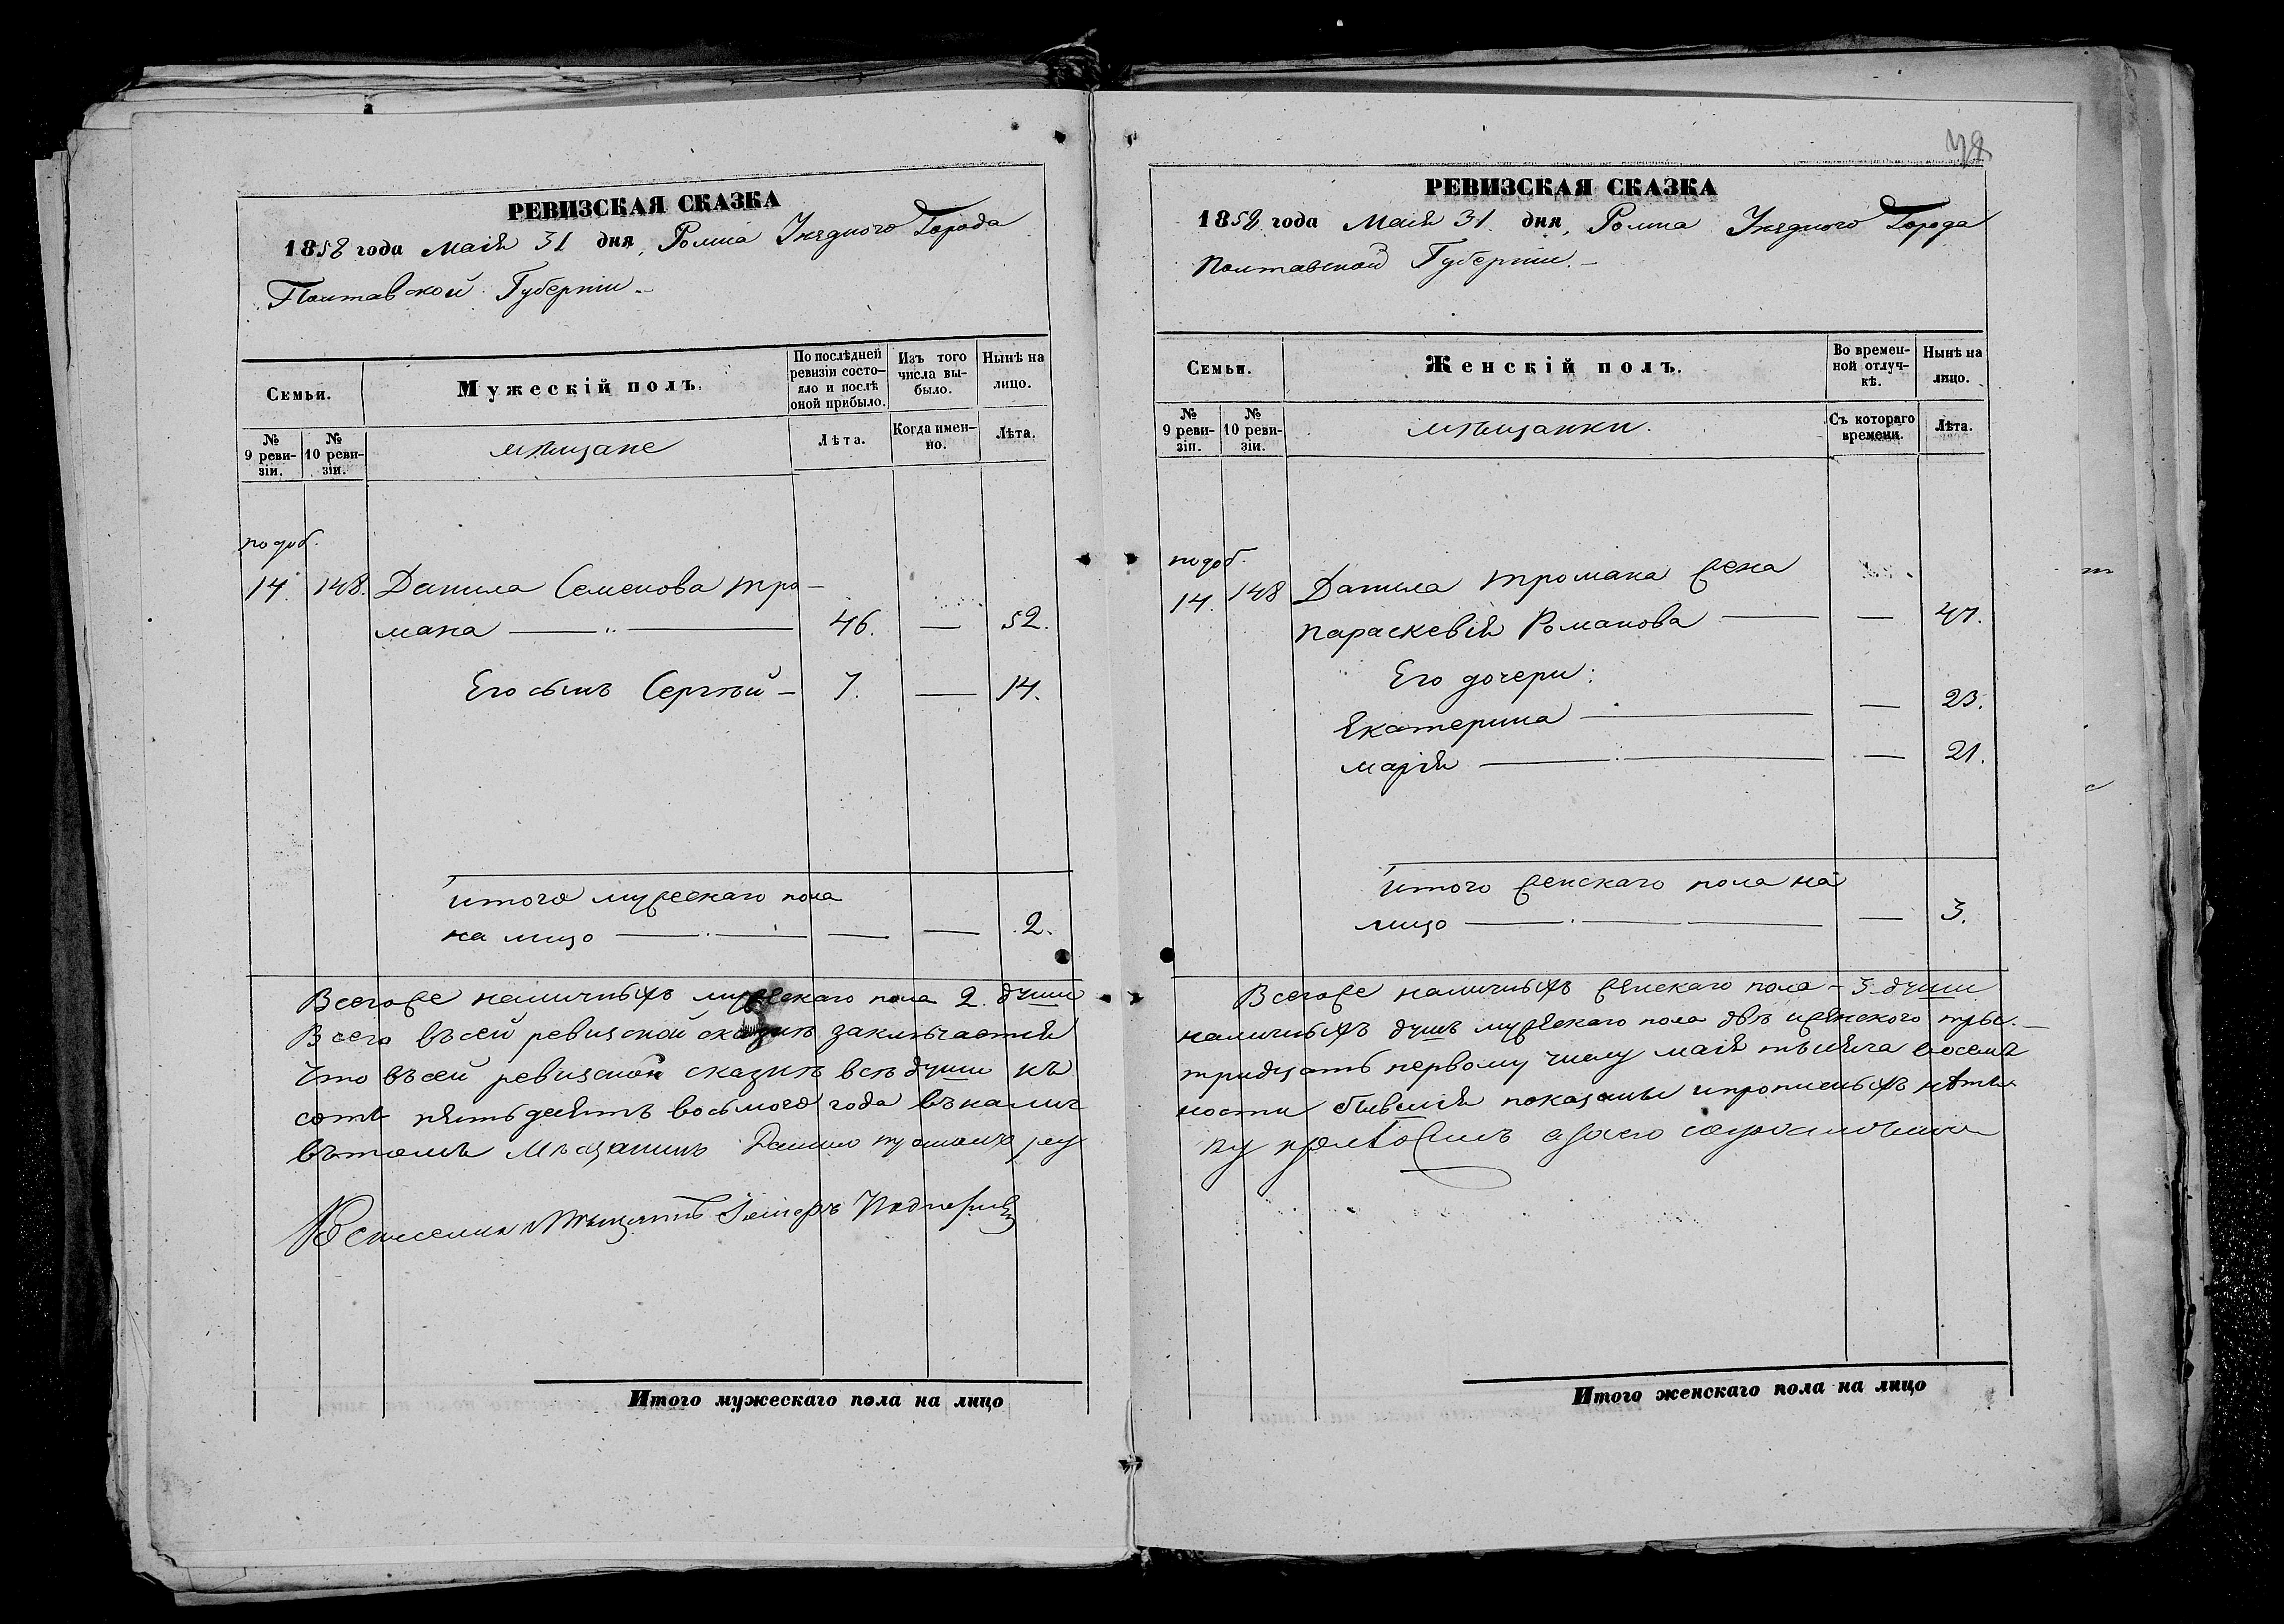 РЕВИЗСКАЯ СКАЗКА
1858 года Маія 31 дня, Ромна Уѣзднаго Города
Полтавской Губерніи.
Семьи.
Мужескій полъ.
По послѣдней ревизіи состо-
яло и послѣ
оной прибыло.
Изъ того
числа вы-
было.
Нынѣ на
лицо.
№
9 реви-
зіи.
№
10 реви-
зіи.
мѣщане
Лѣта.
Когда имен-
но.
Лѣта.
по доб.
14. 148. Данила Семенова Тро-
мака — 46. — 52.
Его сынъ Сергѣй — 7. — 14.
Итого мужескаго пола
на лицо — — — 2.
Всегоже наличныхъ мужескаго пола 2. души
Всего въ сей ревизской сказкѣ заключается
Что въ сей ревизской сказкѣ всѣ души къ
сотъ пятьдесятъ восьмого года въ налич
въ томъ Мѣщанинъ Данило
Мѣщанинъ
Итого мужескаго пола на лицо
РЕВИЗСКАЯ СКАЗКА
1858 года Маія 31. дня, Ромна Уѣзднаго Города
Полтавской Губерніи. —
Семьи.
Женскій полъ.
Во времен-
ной отлуч-
кѣ.
Нынѣ на
лицо.
№
9 реви-
зіи.
№
10 реви-
зіи.
мѣщанки.
Съ котораго
времени.
Лѣта.
по доб.
14. 148 Данила Тромака жена
Параскевія Романова — — 47.
Его дочери:
Екатерина — — 23.
Марія — — 21.
Итого женскаго пола на
лицо — — 3.
Всегоже наличныхъ женскаго пола — 3 души
наличныхъ душъ мужескаго пола двѣ и женского три. —
тридцать первому числу маія мѣсяца восемь
ности бывшія показаны и прописныхъ нѣтъ
Итого женскаго пола на лицо